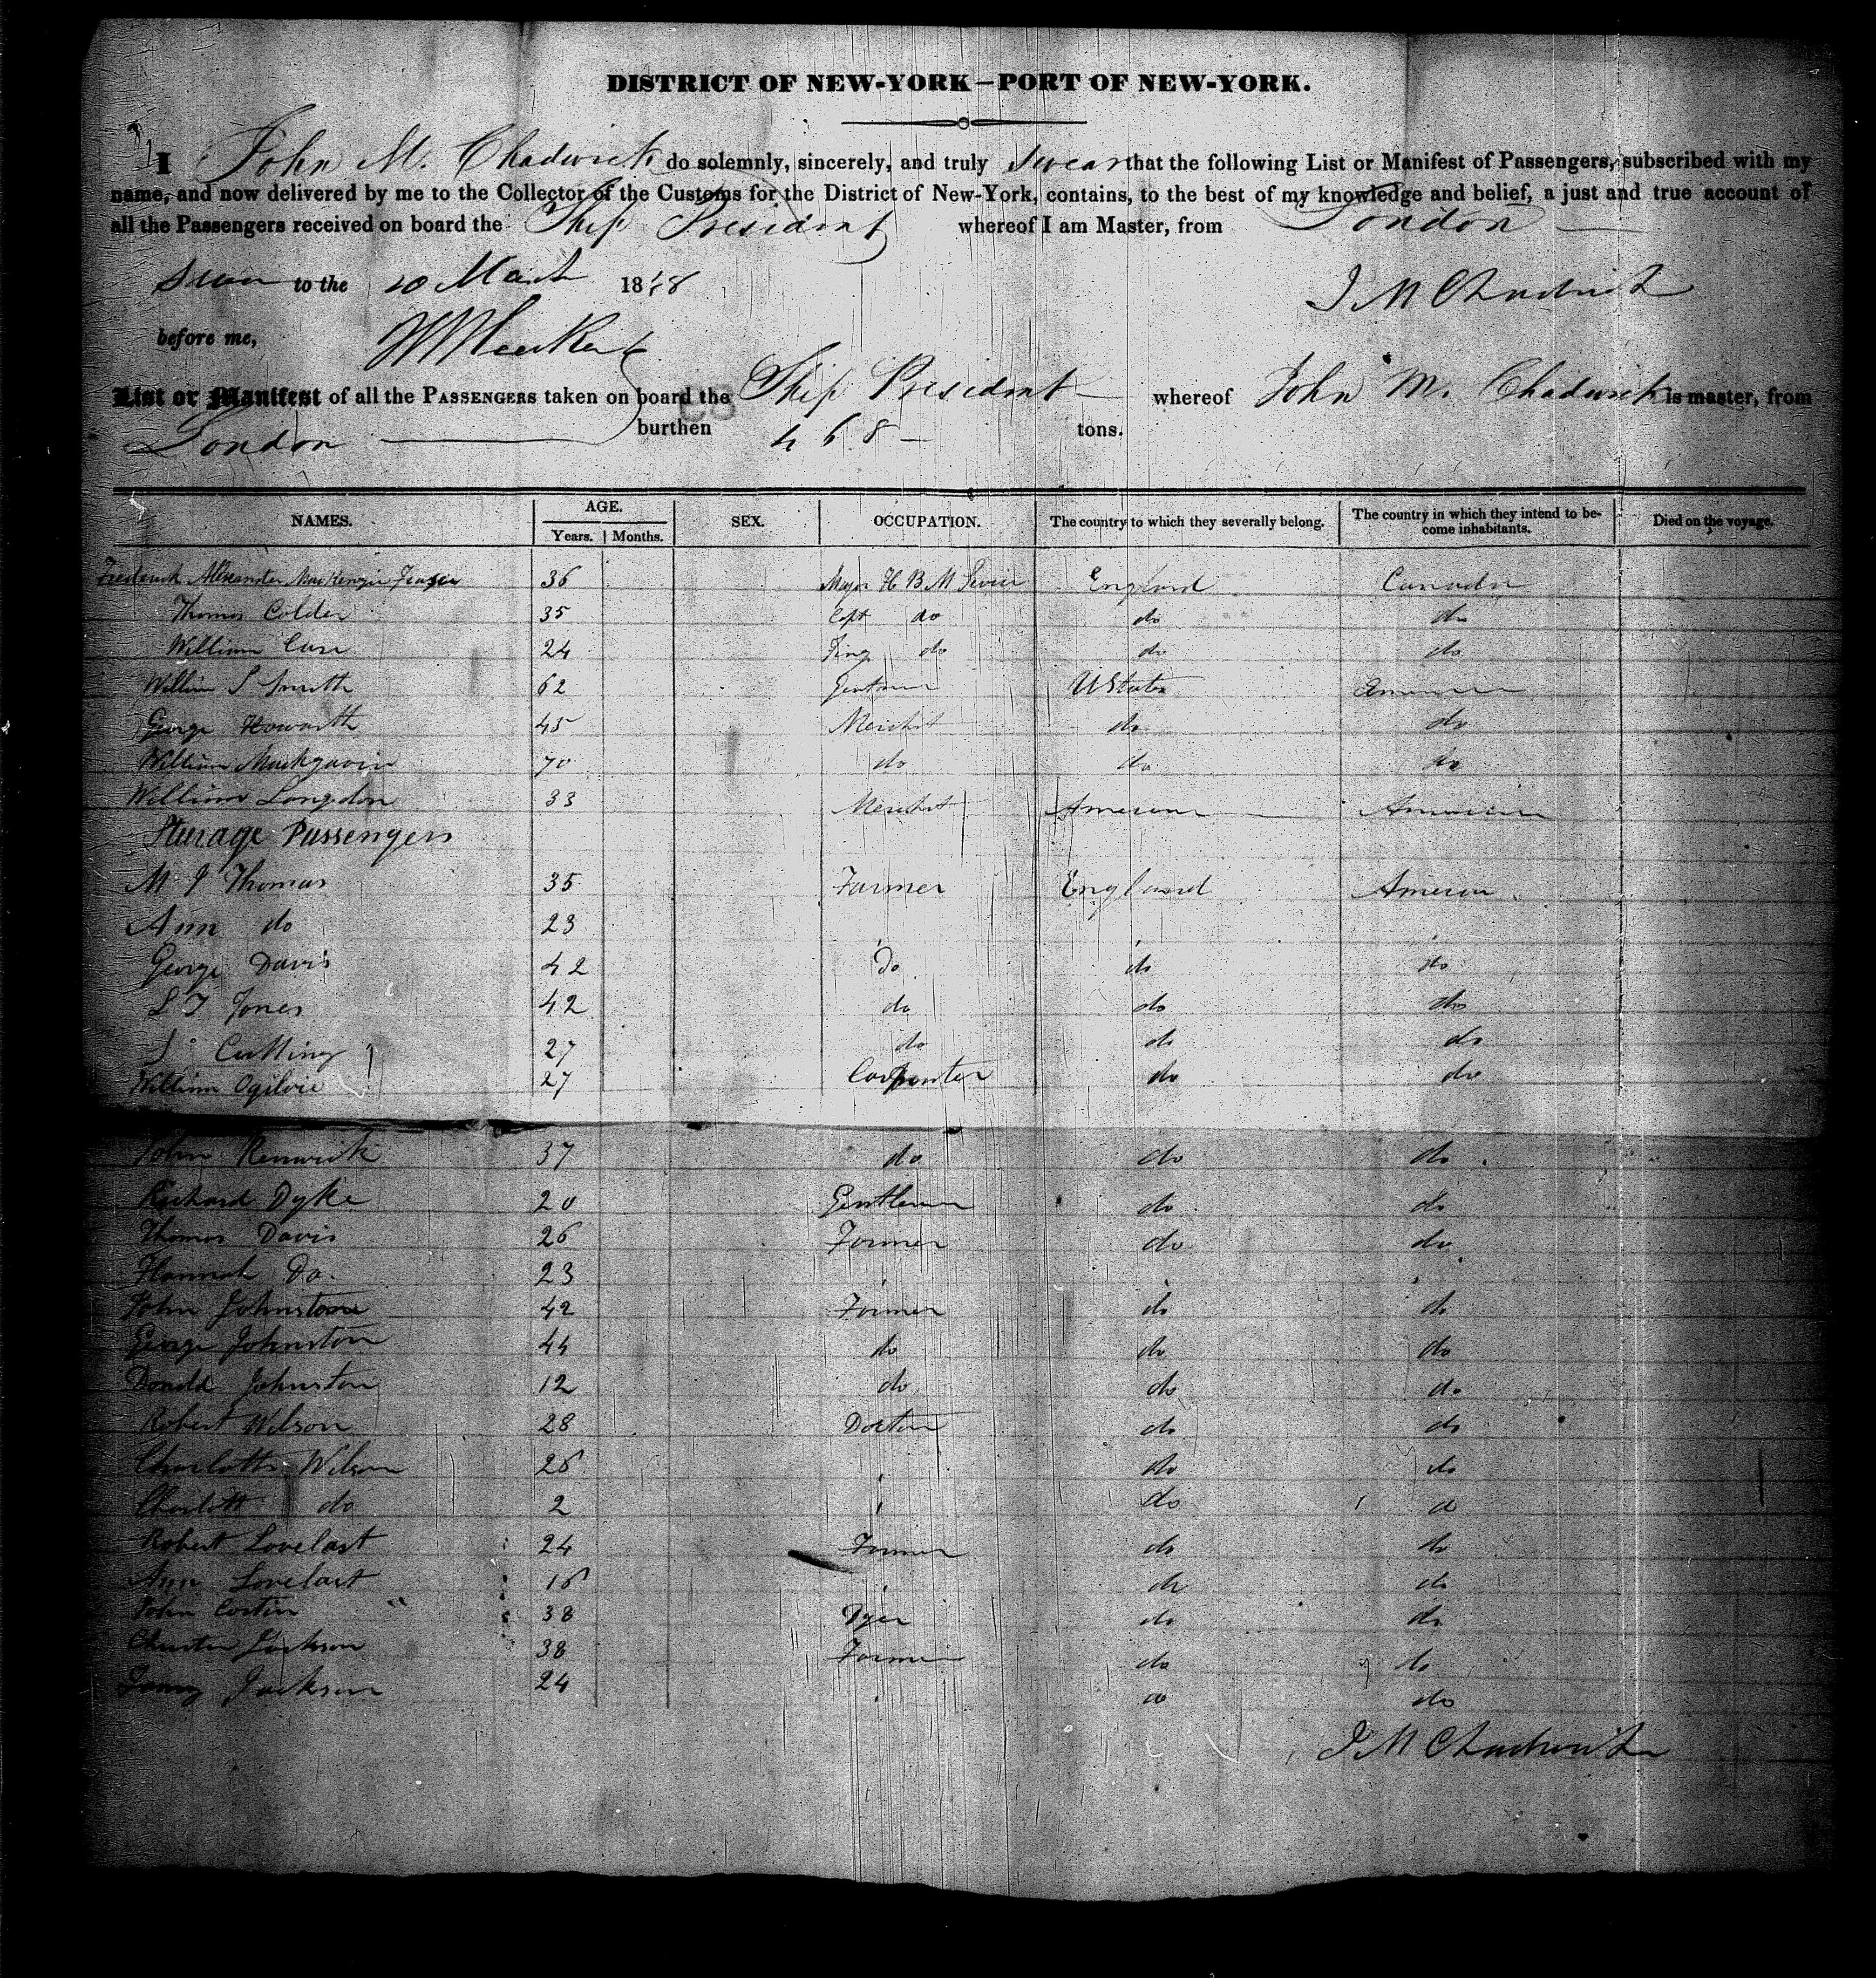 DISTRICT OF NEW-YORK—PORT OF NEW-YORK.
I John M. Chadwick do solemnly, sincerely, and truly swear that the following List or Manifest of Passengers, subscribed with my
name, and now delivered by me to the Collector of the Customs for the District of New-York, contains, to the best of my knowledge and belief, a just and true account of
all the Passengers received on board the Ship President whereof I am Master, from London
to the 20 March 18
J M Chadwick
before me,
List or Manifest of all the PASSENGERS taken on board the Ship President whereof John M. Chadwick is master, from
London burthen 468 tons.
NAMES. AGE. Years. Months. SEX. OCCUPATION. The country to which they severally belong. The country in which they intend to become inhabitants. Died on the voyage.
Frederick Alexander MacKenzie Fraser 36 Major H B M England Canada
Thomas Colder 35 Capt do do do
William 24 do do do
William S Smith 62 U States
George Howarth 45 Mercht do do
William 70 do do do
William Langdon 33 Mercht
Sturage Passengers
M J Thomas 35 Farmer England America
Ann do 23
George Davis 42 Do do do
L T Jones 42 do do do
J Cutting 27 do do do
William Ogilvie 27 Carpenter do do
John Renwick 37 do do do
Richard Dyke 20 Gentleman do do
Thomas Davis 26 Farmer do do
Hannah Do. 23
John Johnstone 42 Farmer do do
George Johnston 44 do do do
Donald Johnston 12 do do do
Robert Wilson 28 Doctor do do
Charlotte Wilson 26 do do
Charlott do 2 do do
Robert Lovelast 24 Farmer do do
Ann Lovelast 16 do do
John Costin 38 Dyer do do
Jackson 38 Farmer do do
Jackson 24 do do
J M Chadwick